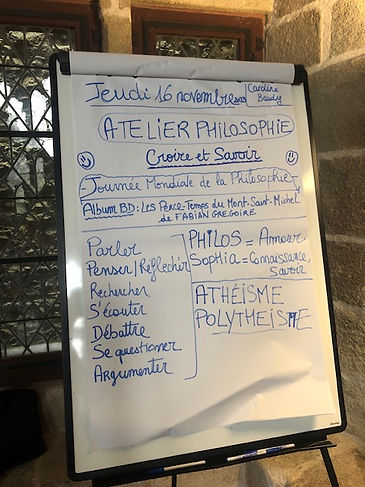 Jeudi 16 novembre 2023
Caroline
Baudry
ATELIER PHILOSOPHIE
Croire et Savoir
Journée Mondiale de la Philosophie
Album BD: Les Perce-Temps du Mont-Saint-Michel
de FABIAN GREGOIRE
Parler
Penser/Réfléchir
Rechercher
S'écouter
Débattre
Se questionner
Argumenter
PHILOS = Amour
Sophia = Connaissance,
Savoir
ATHÉISME
POLYTHEISME